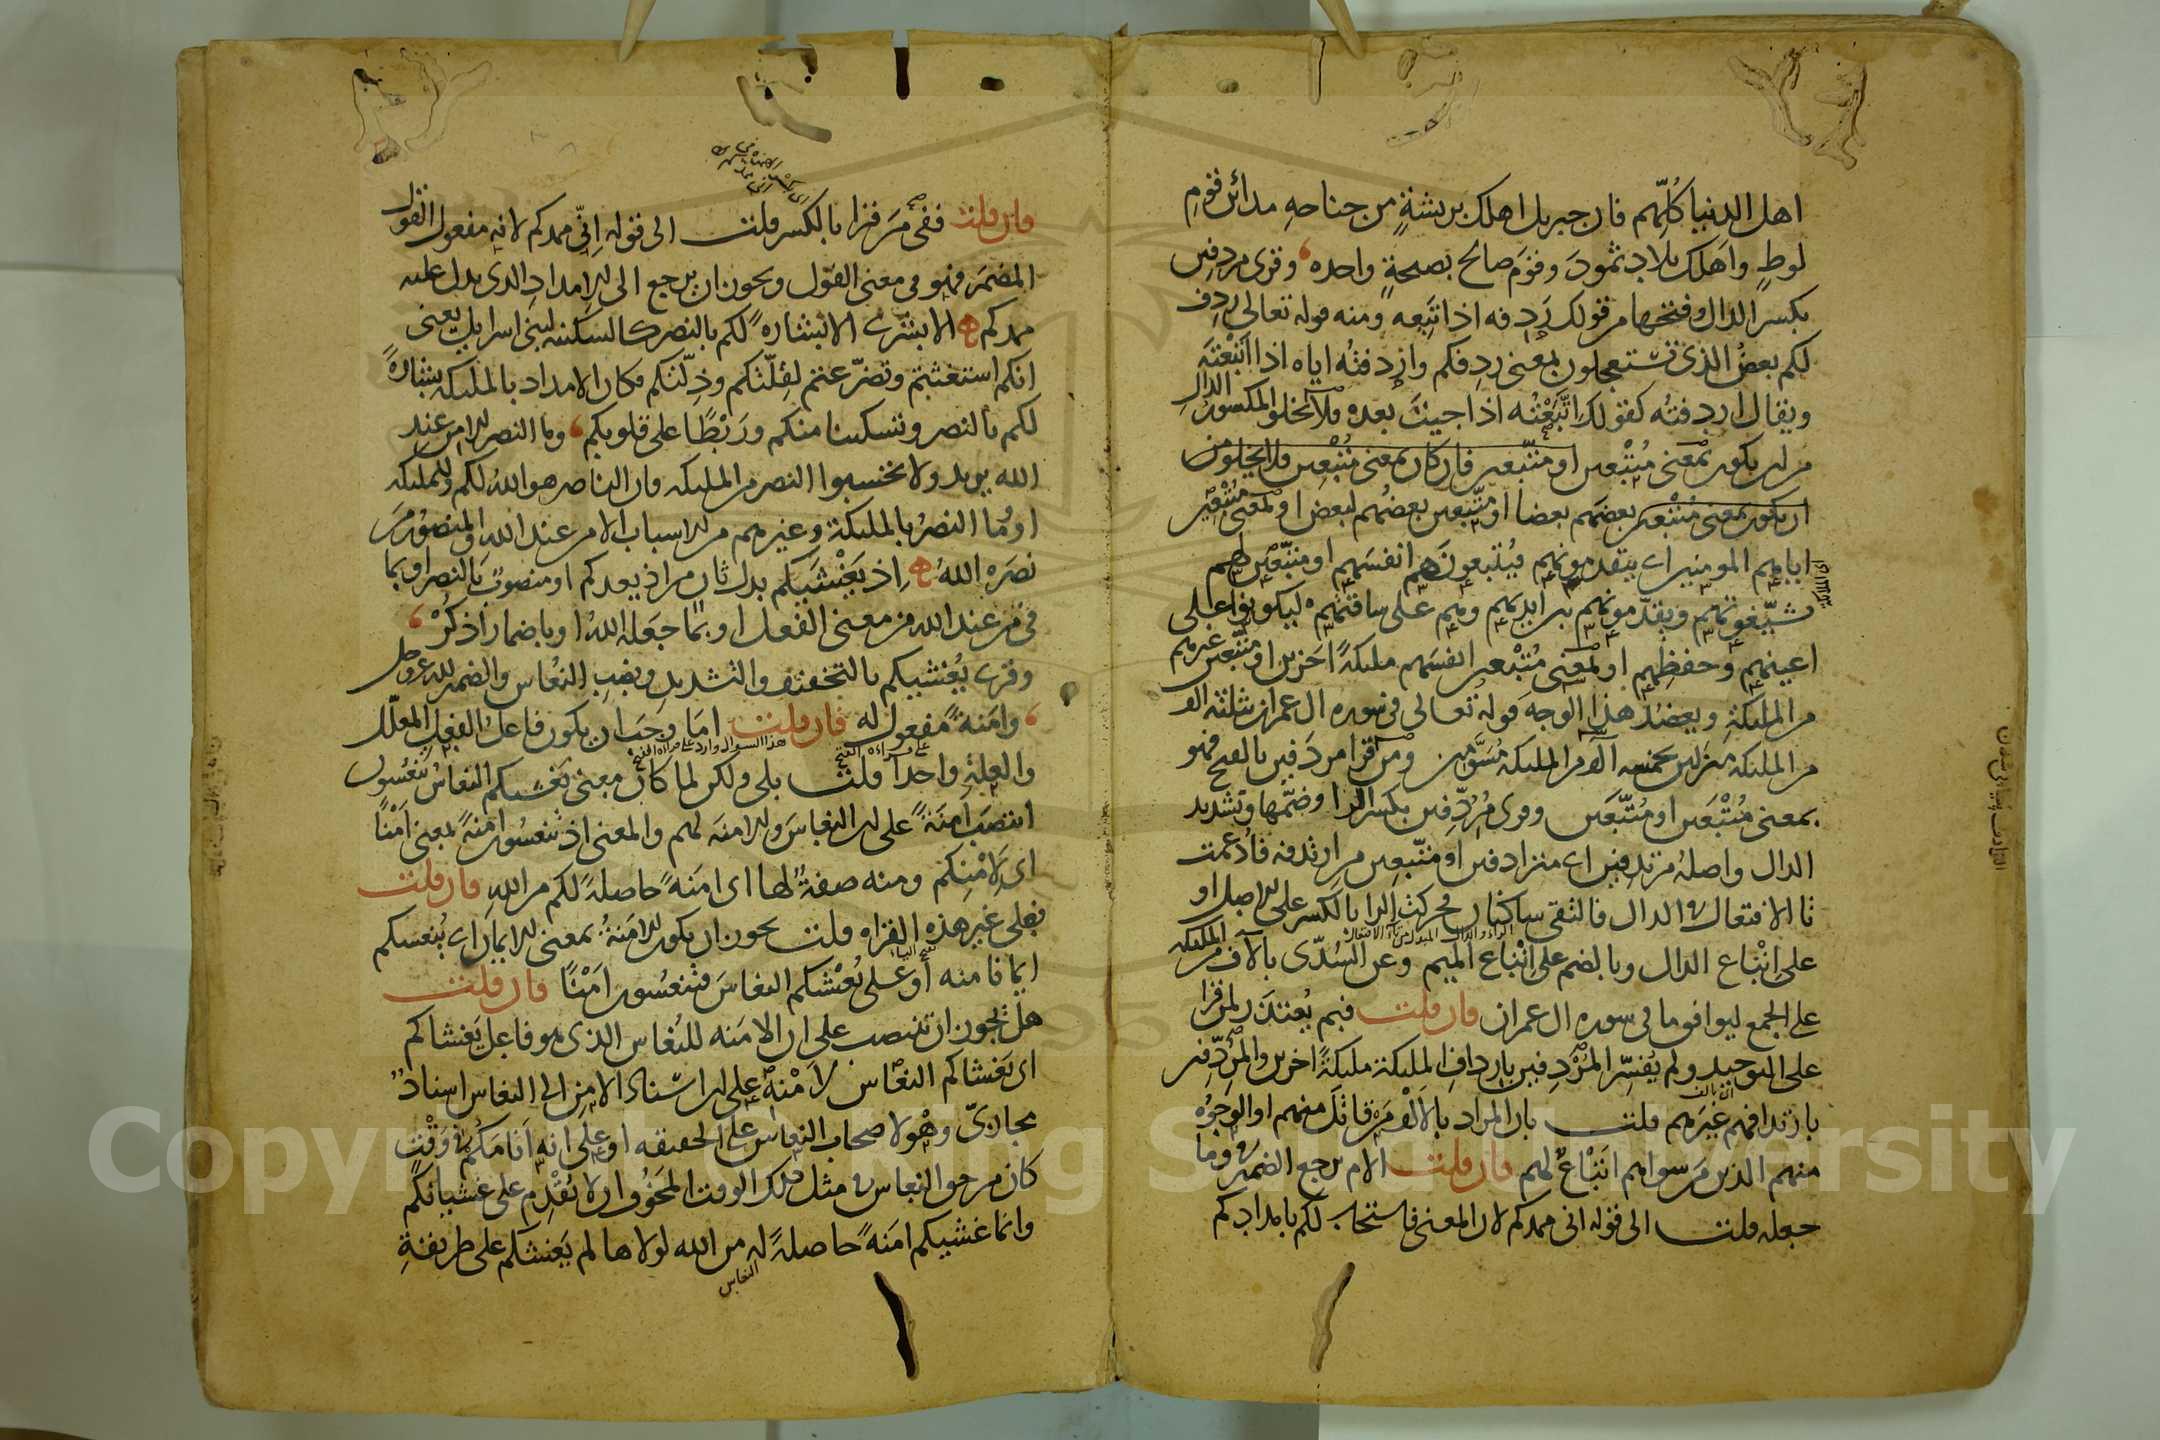 اهل الدنيا كُلِّهم فان جبريل اهلك بريشةٍ من جناحهِ مدائن قومِ
لوطٍ واَهلك بلاد ثمودَ وقوَم صالح بصيحةٍ واحده وقرى مردفِين
بكسر الدال وفتحها من قولك رَدِفه اذا تَبِعه ومنه قوله تعالى رَدِف
لكم بعضُ الذى تستعجلون بمعنى ردِفكم واردفتُه اياه اذا اتبعْتَه
ويقال اردفتُه كقولك اتّبَعْتُه اذا جيتَ بعده فلا يخلو المكسور الدال
من ان يكون بمعنى مُتْبعين او متّبعين فان كان بمعنى مُتْبعِين فلا يخلو من
ان يكون بمعنى متْبعين بعضَهم بعضا او متّبعين بعضُهم لبعض او بمعنى مُتْبعِين
اياهم المومنين اى يتقدمونهم فيُتبعونَهم انفسَهم او متّبعين لهم
يُشيّعونهم ويقدّمونهم بين ايديهم وهم على ساقتهم ليكونوا على
اعينهم وحفظِهم او بمعنى مُتْبعين انفسَهم مليكةً اخرين او متّبعين غيرهم
من المليكةِ ويعضدُ هذا الوجهَ قوله تعالى فى سوره ال عمران بثلثه الاف
من المليكه منزلين بخمسه الاف من المليكه مُسَوَّمين ومن قرا مردَفين بالفتح فهو
بمعنى مُتْبَعين او مُتّبَعين وقرى مُرُدِّفين بكسر الرا وضمّها وتشديد
الدال واصلهُ مرتدفين اى مترادفين او متّبعين من ارتدفه فادغمت
تا الافتعال فى الدال فالتقى ساكنان فحركت الرا بالكسر على الاصل او
على اتْباع الدال وبالضم على اتْباع الميم وعن السُدّى بالاف من المليكه
على الجمع ليوافق ما فى سوره ال عمران فان قلت فبم يُعتذر لمن قرا
على التوحيد ولم يُفسِّر المُرْدفين بارداف المليكة مليكةً اخرين والمردفين
بارتدافهم غيرَهم قلت بان المراد بالالْف مَن قاتَل منهم او الوجُوه
منهم الذين مَن سواهم اَتْباعٌ لهم فان قلت الام يرجع الضمير فى وما
جعله قلت الى قوله انى ممدكم لان المعنى فاستجاب لكم بامدادكم
فان قلت ففى مَن قرا بالكسر قلت الى قوله اِنّى ممدكم لانه مفعول القول
المضمَر فهو فى معنى القول ويجوز ان يرجع الى الامدادِ الذى يدل عليه
ممدكم الا بشرى الا بشاره لكم بالنصر كالسكينه لبنى اسرايل يعنى
انكم استغثتم وتضرّعتم لقِلّتكم وذِلّتكم فكان الامداد بالمليكه بشارةً
لكم بالنصر وتسكينا منكم ورَبْطًا على قلوبكم وما النصر الا من عند
الله يريد ولا تحسبوا النصر من المليكه فان الناصر هو اللهُ لكم وللمليكه
او وما النصرُ بالمليكة وغيرهم من الاسباب الا من عند الله والمنصُور من
نصَره اللهُ اِذ يَغْشَيكم بدل ثان من اذ يعدكم او منصوبٌ بالنصر او بما
فى من عند الله من معنى الفعل او بما جَعله اللهُ او باضمار اذكُرْ
وقرى يُغْشيكم بالتخفيف والتشديد ونصبِ النُعاس والضمير لله عز وجل
وامَنةً مفعول له فان قلت اما وجَب ان يكون فاعل الفعل المعلّل
هذا السوال وارد على قراه الفتح
والعِلّةِ واحدا قلت بلى ولكن لما كان معنى يَغْشيكم النعاسُ تنعُسون
انتصَب امَنةً على ان النعاسَ والامنه لهم والمعنى اذ تنعُسون امَنةً بمعنى اَمْنًا
اى لاَمْنِكم ومنه صفةٌ لها اى امَنةً حاصلةً لكم من اللهِ فان قلت
فعلى غير هذه القراه قلت يجوز ان يكون الامَنةُ بمعنى الايمان اى يُنعسكم
ايمانا منه او على يُغْشيكم النعاسَ فتنعُسون امْنًا فان قلت
هل يجوز ان تنتصب على ان الامَنه للنُعاس الذى هو فاعل يَغشاكم
اى يَغشاكم النعَاس لاَمْنِه على ان اسناد الامنِ الى النعاس اسناد
مجازىّ وهْو لاصحاب النعاس على الحقيقه او على انه اَنامَكُم فى وَقْت
كان من حق النعاس فى مثل ذلك الوقت المخَوُف ان لا يُقْدِم على غشيانكم
وانما غشيكم امَنةً حاصلةً له من الله لولاها لم يَغشكم على طريقةِ
النعاس